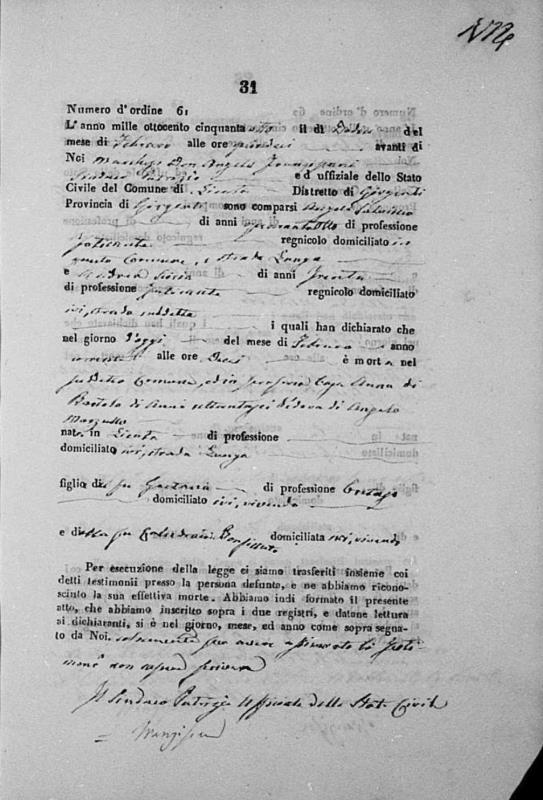 31
Numero d'ordine 61
L'anno mille ottocento cinquanta otto il dì Dodici del
mese di Febraro alle ore quindeci avanti di
Noi Marchese Don Angelo Frangipani
Sindaco Patrizio ed uffiziale dello Stato
Civile del Comune di Licata Distretto di Girgenti
Provincia di Girgenti sono comparsi Angelo
di anni di professione
regnicolo domiciliato in
questo Comune, e strada Lunga
e Andrea di anni Trenta
di professione regnicolo domiciliato
ivi, strada suddetta
i quali han dichiarato che
nel giorno d'oggi del mese di Febraro anno
corrente alle ore Dieci è morta nel
suddetto Comune, ed in Casa Anna di
Bartolo di Anni ottantasei Vedova di Angelo
nata in Licata di professione
domiciliato ivi, strada Lunga
figlia del fu Gaetano di professione
domiciliato ivi, vivendo
e della fu domiciliata ivi, vivendo
Per esecuzione della legge ci siamo trasferiti insieme coi
detti testimonii presso la persona defunta, e ne abbiamo ricono-
sciuto la sua effettiva morte. Abbiamo indi formato il presente
atto, che abbiamo inscritto sopra i due registri, e datone lettura
ai dichiaranti, si è nel giorno, mese, ed anno come sopra segna-
to da Noi. solamente per avere assicurato li testi-
monî non sapere scrivere
Il Sindaco Patrizio Uffiziale dello Stato Civile